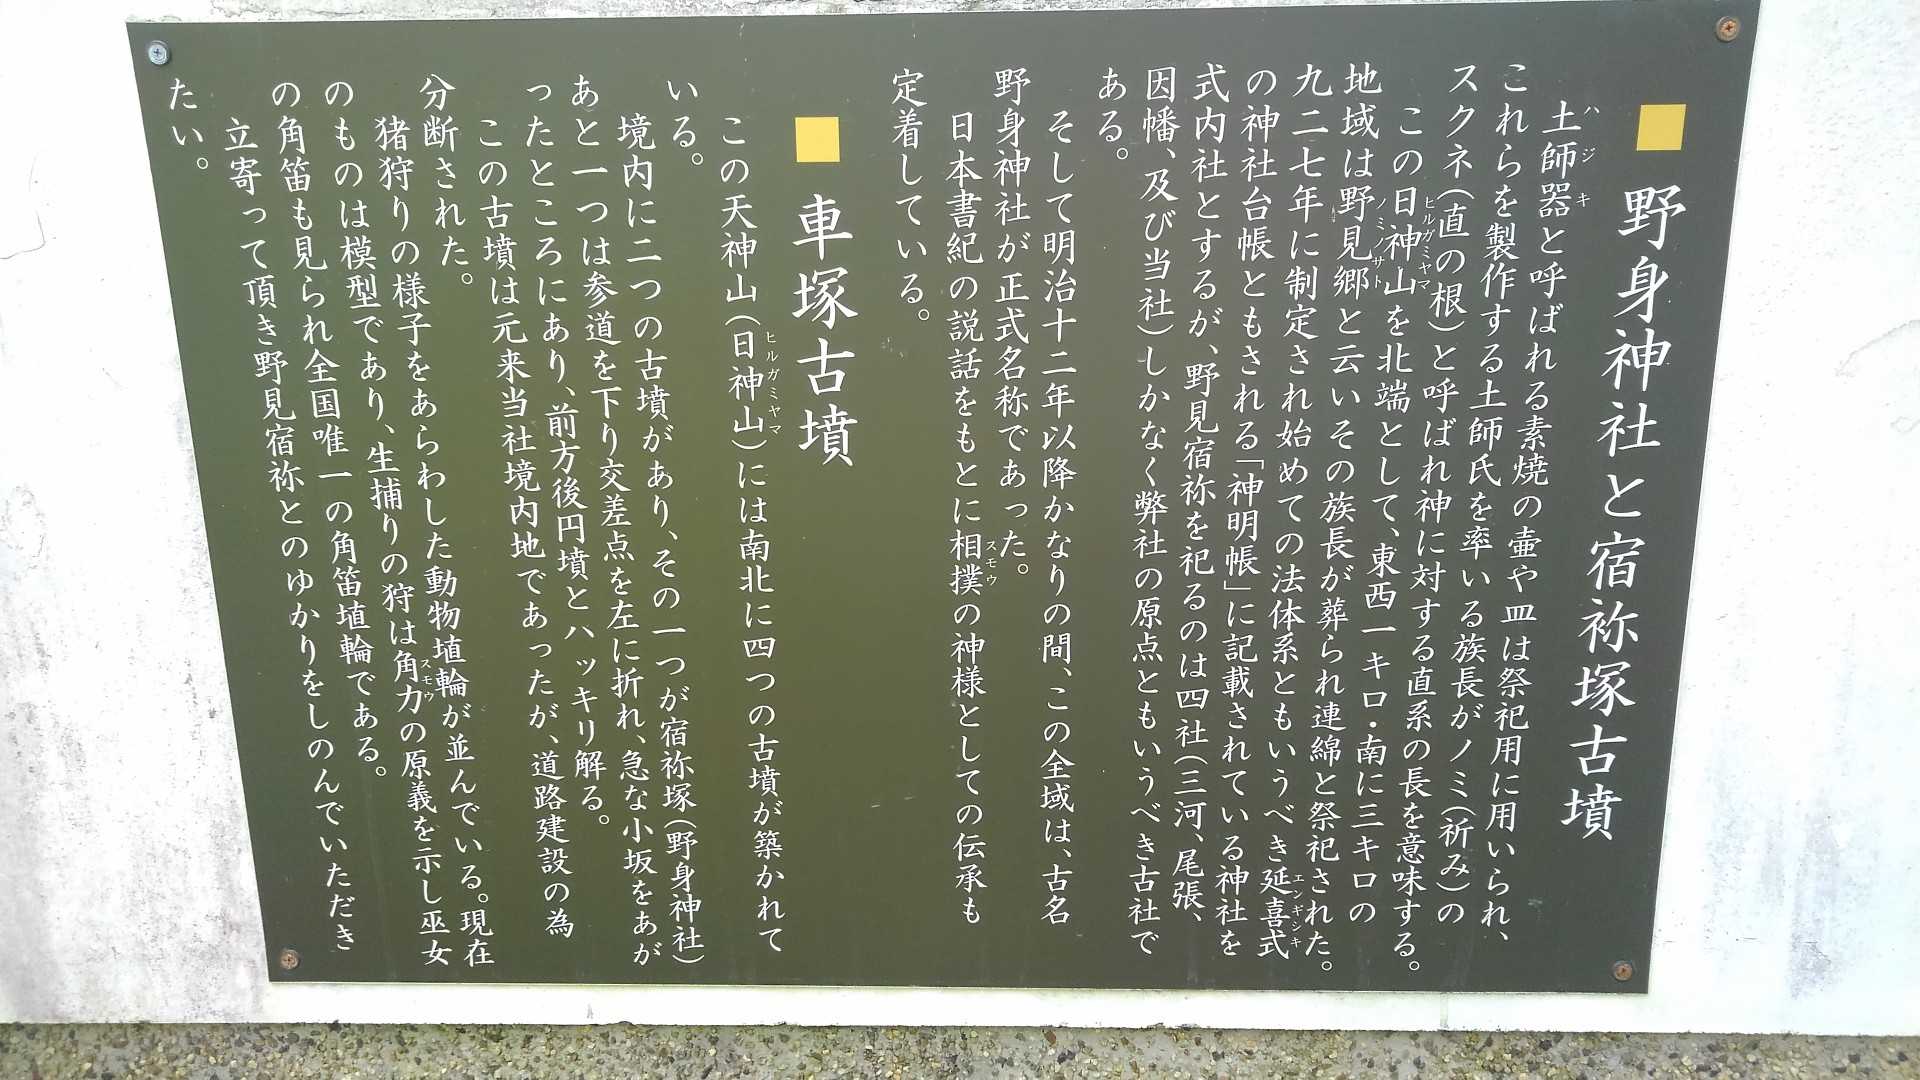 ■ 野身神社と宿祢塚古墳
土師器と呼ばれる素焼の壷や皿は祭祀用に用いられ、
ハジキ
これらを製作する土師氏を率いる族長がノミ(祈み)の
スクネ(直の根)と呼ばれ神に対する直系の長を意味する。
この日神山を北端として、東西一キロ・南に三キロの
ヒルガミヤマ
地域は野見郷と云いその族長が葬られ連綿と祭祀された。
ノミノサト
九二七年に制定され始めての法体系ともいうべき延喜式
エンギシキ
の神社台帳ともされる「神明帳」に記載されている神社を
式内社とするが、野見宿祢を祀るのは四社(三河、尾張、
因幡、及び当社)しかなく弊社の原点ともいうべき古社で
ある。
そして明治十二年以降かなりの間、この全域は、古名
野身神社が正式名称であった。
日本書紀の説話をもとに相撲の神様としての伝承も
スモウ
定着している。
■ 車塚古墳
この天神山(日神山)には南北に四つの古墳が築かれて
ヒルガミヤマ
いる。
境内に二つの古墳があり、その一つが宿祢塚(野身神社)
あと一つは参道を下り交差点を左に折れ、急な小坂をあが
ったところにあり、前方後円墳とハッキリ解る。
この古墳は元来当社境内地であったが、道路建設の為
分断された。
猪狩りの様子をあらわした動物埴輪が並んでいる。現在
のものは模型であり、生捕りの狩は角力の原義を示し巫女
スモウ
の角笛も見られ全国唯一の角笛埴輪である。
立寄って頂き野見宿祢とのゆかりをしのんでいただき
たい。